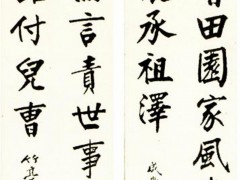 田園家風
承祖澤
言責世事
付兒曹
竹